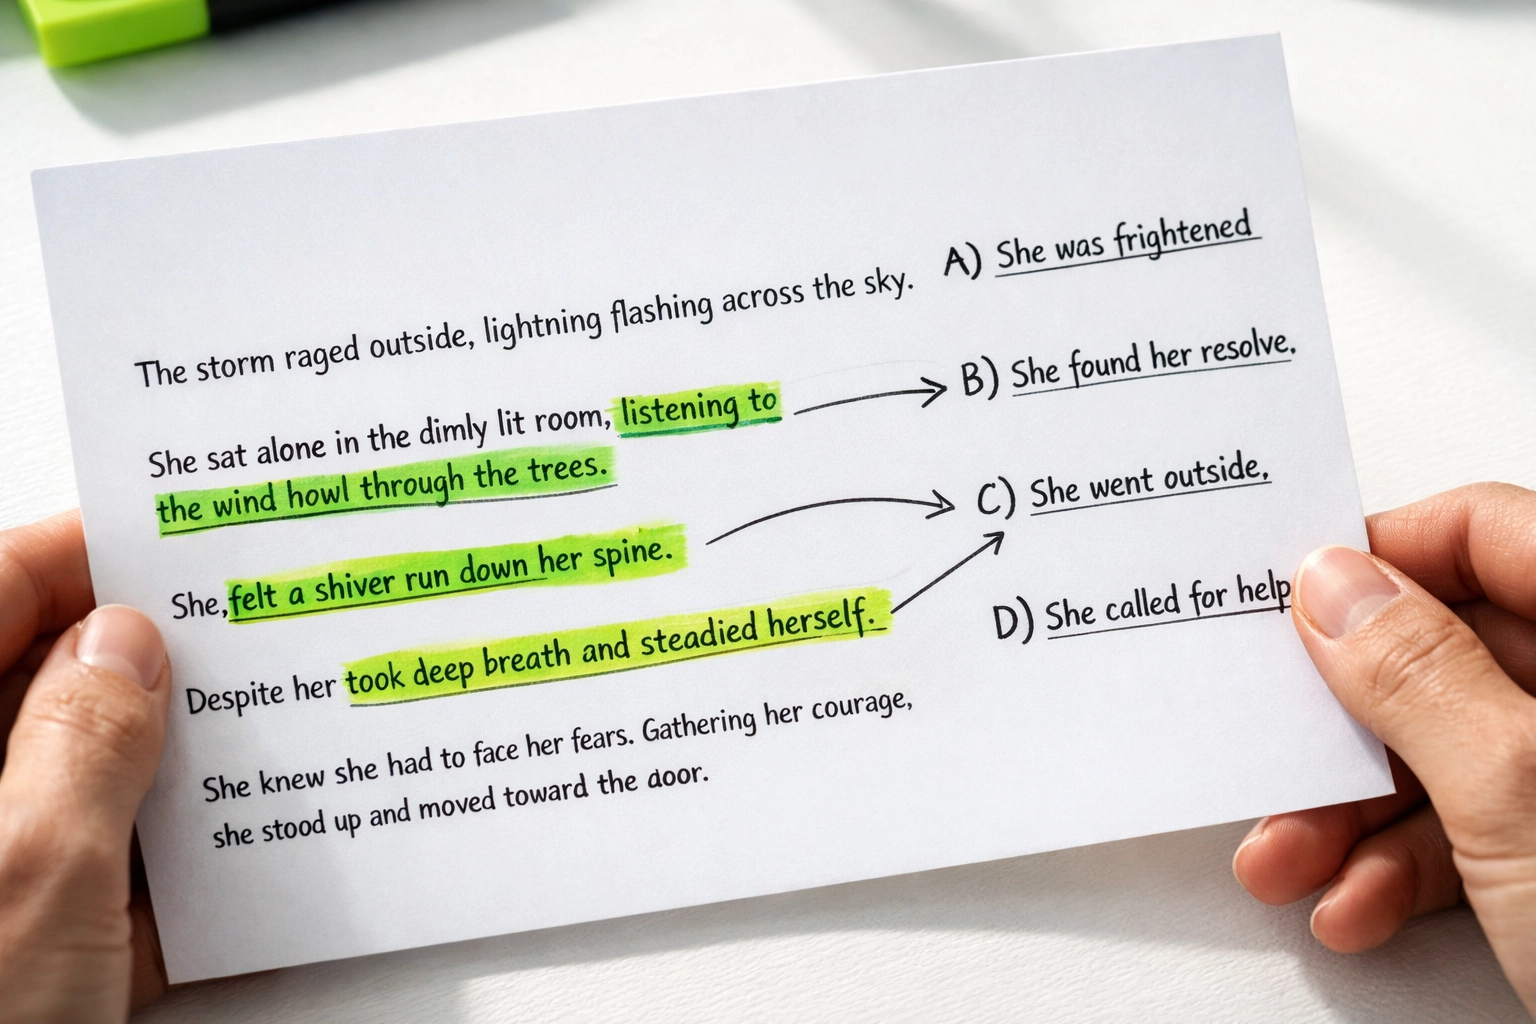 The storm raged outside, lightning flashing across the sky.
She sat alone in the dimly lit room, listening to
the wind howl through the trees.
She, felt a shiver run down her spine.
Despite her took deep breath and steadied herself.
She knew she had to face her fears. Gathering her courage,
she stood up and moved toward the door.
A) She was frightened
B) She found her resolve.
C) She went outside,
D) She called for help